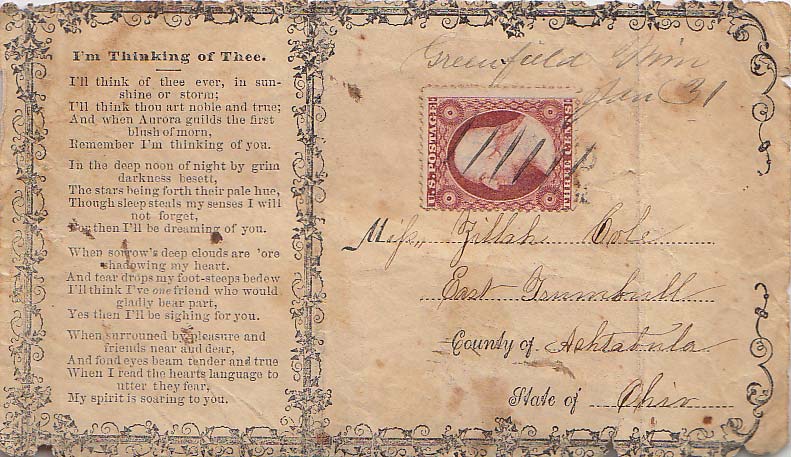 I'm Thinking of Thee.
I'll think of thee ever, in sun-
shine or storm;
I'll think thou art noble and true;
And when Aurora guilds the first
blush of morn,
Remember I'm thinking of you.
In the deep noon of night by grim
darkness besett,
The stars being forth their pale hue,
Though sleep steals my senses I will
not forget,
For then I'll be dreaming of you.
When sorrow's deep clouds are 'ore
shadowing my heart.
And tear drops my foot-steeps bedew
I'll think I've one friend who would
gladly bear part,
Yes then I'll be sighing for you.
When surrouned by pleasure and
friends near and dear,
And fond eyes beam tender and true
When I read the hearts language to
utter they fear,
My spirit is soaring to you.
Greenfield Min
Jan 31
U.S. POSTAGE
THREE CENTS
Miss, Zillah Cole
East Trumbull
County of Ashtabula
State of Ohio